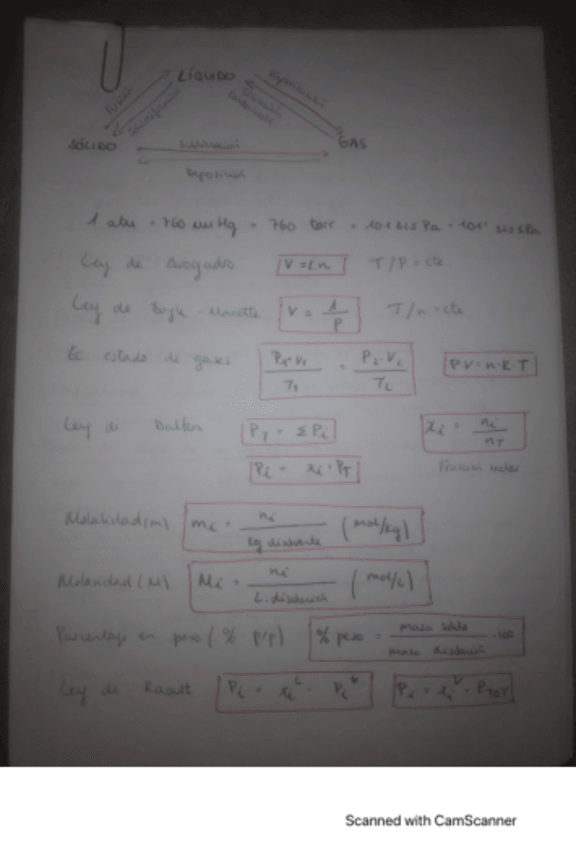 LÍQUIDO
Fusión
Vaporización
Solidificación
SÓLIDO
GAS
Sublimación
Deposición
1 atm = 760 mmHg = 760 torr = 101325 Pa = 101'325 kPa
Ley de Avogadro V = k·n T/P = cte
Ley de Boyle-Mariotte V = 1/P T/n = cte
Ec. estado de gases P₁·V₁/T₁ = P₂·V₂/T₂ PV = n·R·T
Ley de Dalton P_T = Σ P_i x_i = n_i/n_T
P_i = x_i · P_T Fracción molar
Molalidad (m) m_i = n_i/kg disolvente (mol/kg)
Molaridad (M) M_i = n_i/L. disolución (mol/L)
Porcentaje en peso (% p/p) % peso = masa soluto/masa disolución ·100
Ley de Raoult P_i = x_i^L · P_i^* P_i = x_i^V · P_TOT
Scanned with CamScanner